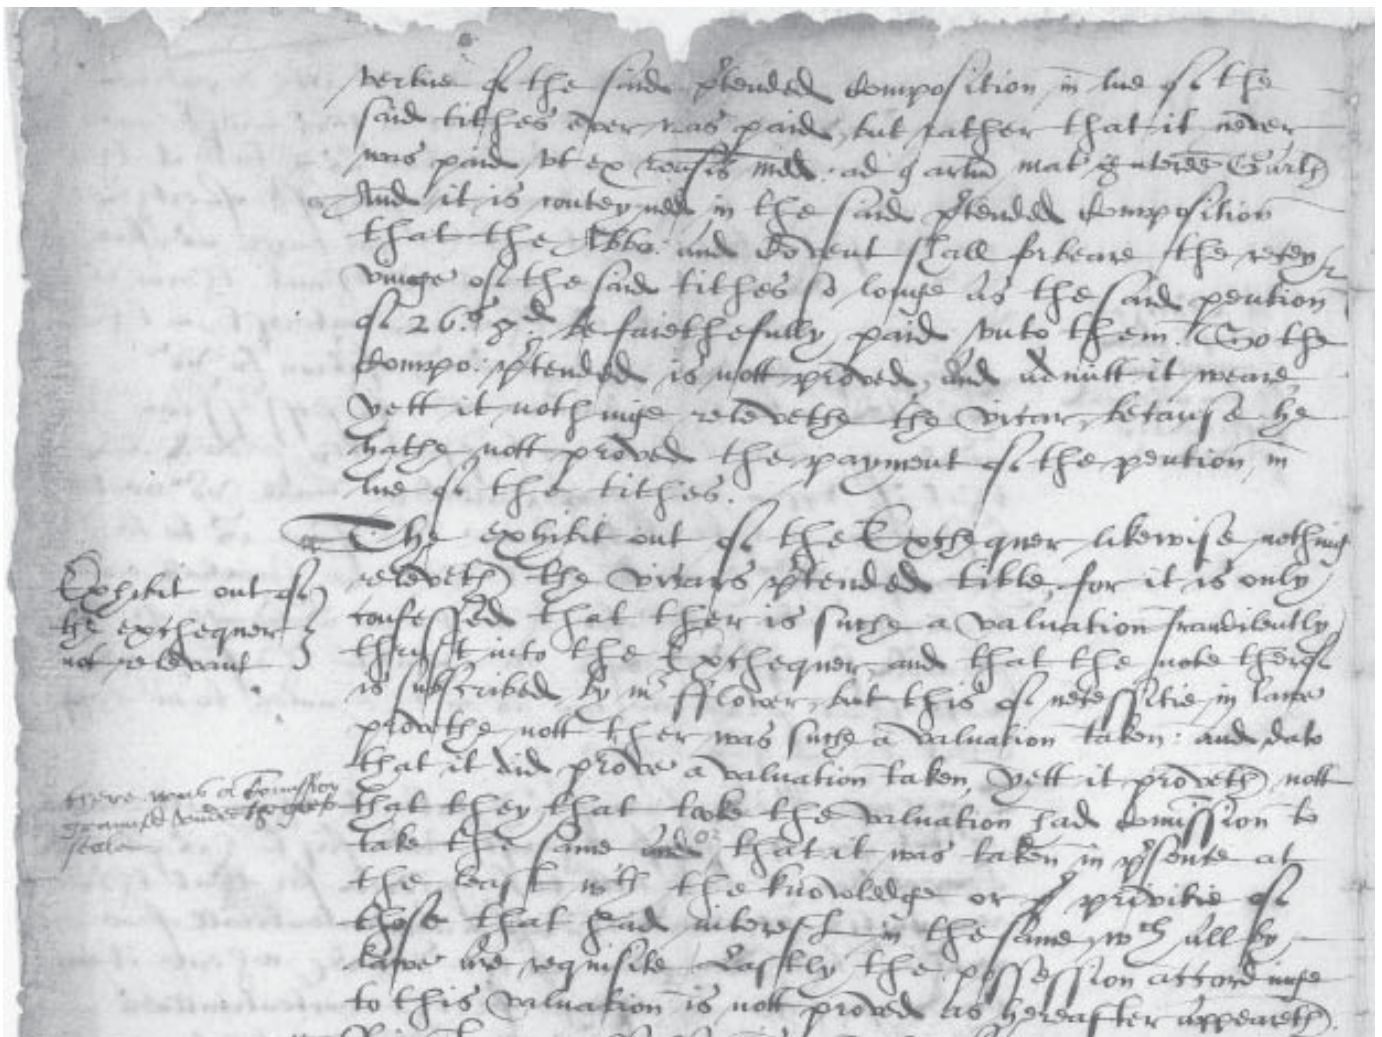 vertue of the said p'tended Composition in lue of the
said tithes ever was paid, but rather that it never
was paid vt ex ad 9 artm mat
And it is conteyned in the said p'tended Composition
that the Abbo: and Covent shall forbeare the recey-
vinge of the said tithes so longe as the said pention
of 26s 8d be faiethefully paid vnto them. So the
Compo: p'tended is nott proved, and admitt it weare
yett it nothinge relevethe the vicar, because he
hathe nott proved the payment of the pention in
lue of ther tithes.
The exhibit out of the Exchequer likewise nothing
releveth the vicars p'tended title, for it is only
Exhibit out of
the exchequer
not relevant
confessed that ther is suche a valuation fraudilently
thrust into the Exchequer and that the note therof
is subscribed by mr fflower, but this of necessitie in lawe
provethe nott ther was suche a valuation taken: and dato
that it did prove a valuation taken, yett it proveth nott
there was a Comission
graunted vnder the great
seale
that they that tooke the valuation had comission to
take the same or that it was taken in p'sence at
the least wth the knowledge or privitie of
those that had interest in the same, wch all by
lawe are requisite. Lastly the possession accordinge
to this valuation is nott proved as hereafter appeareth.